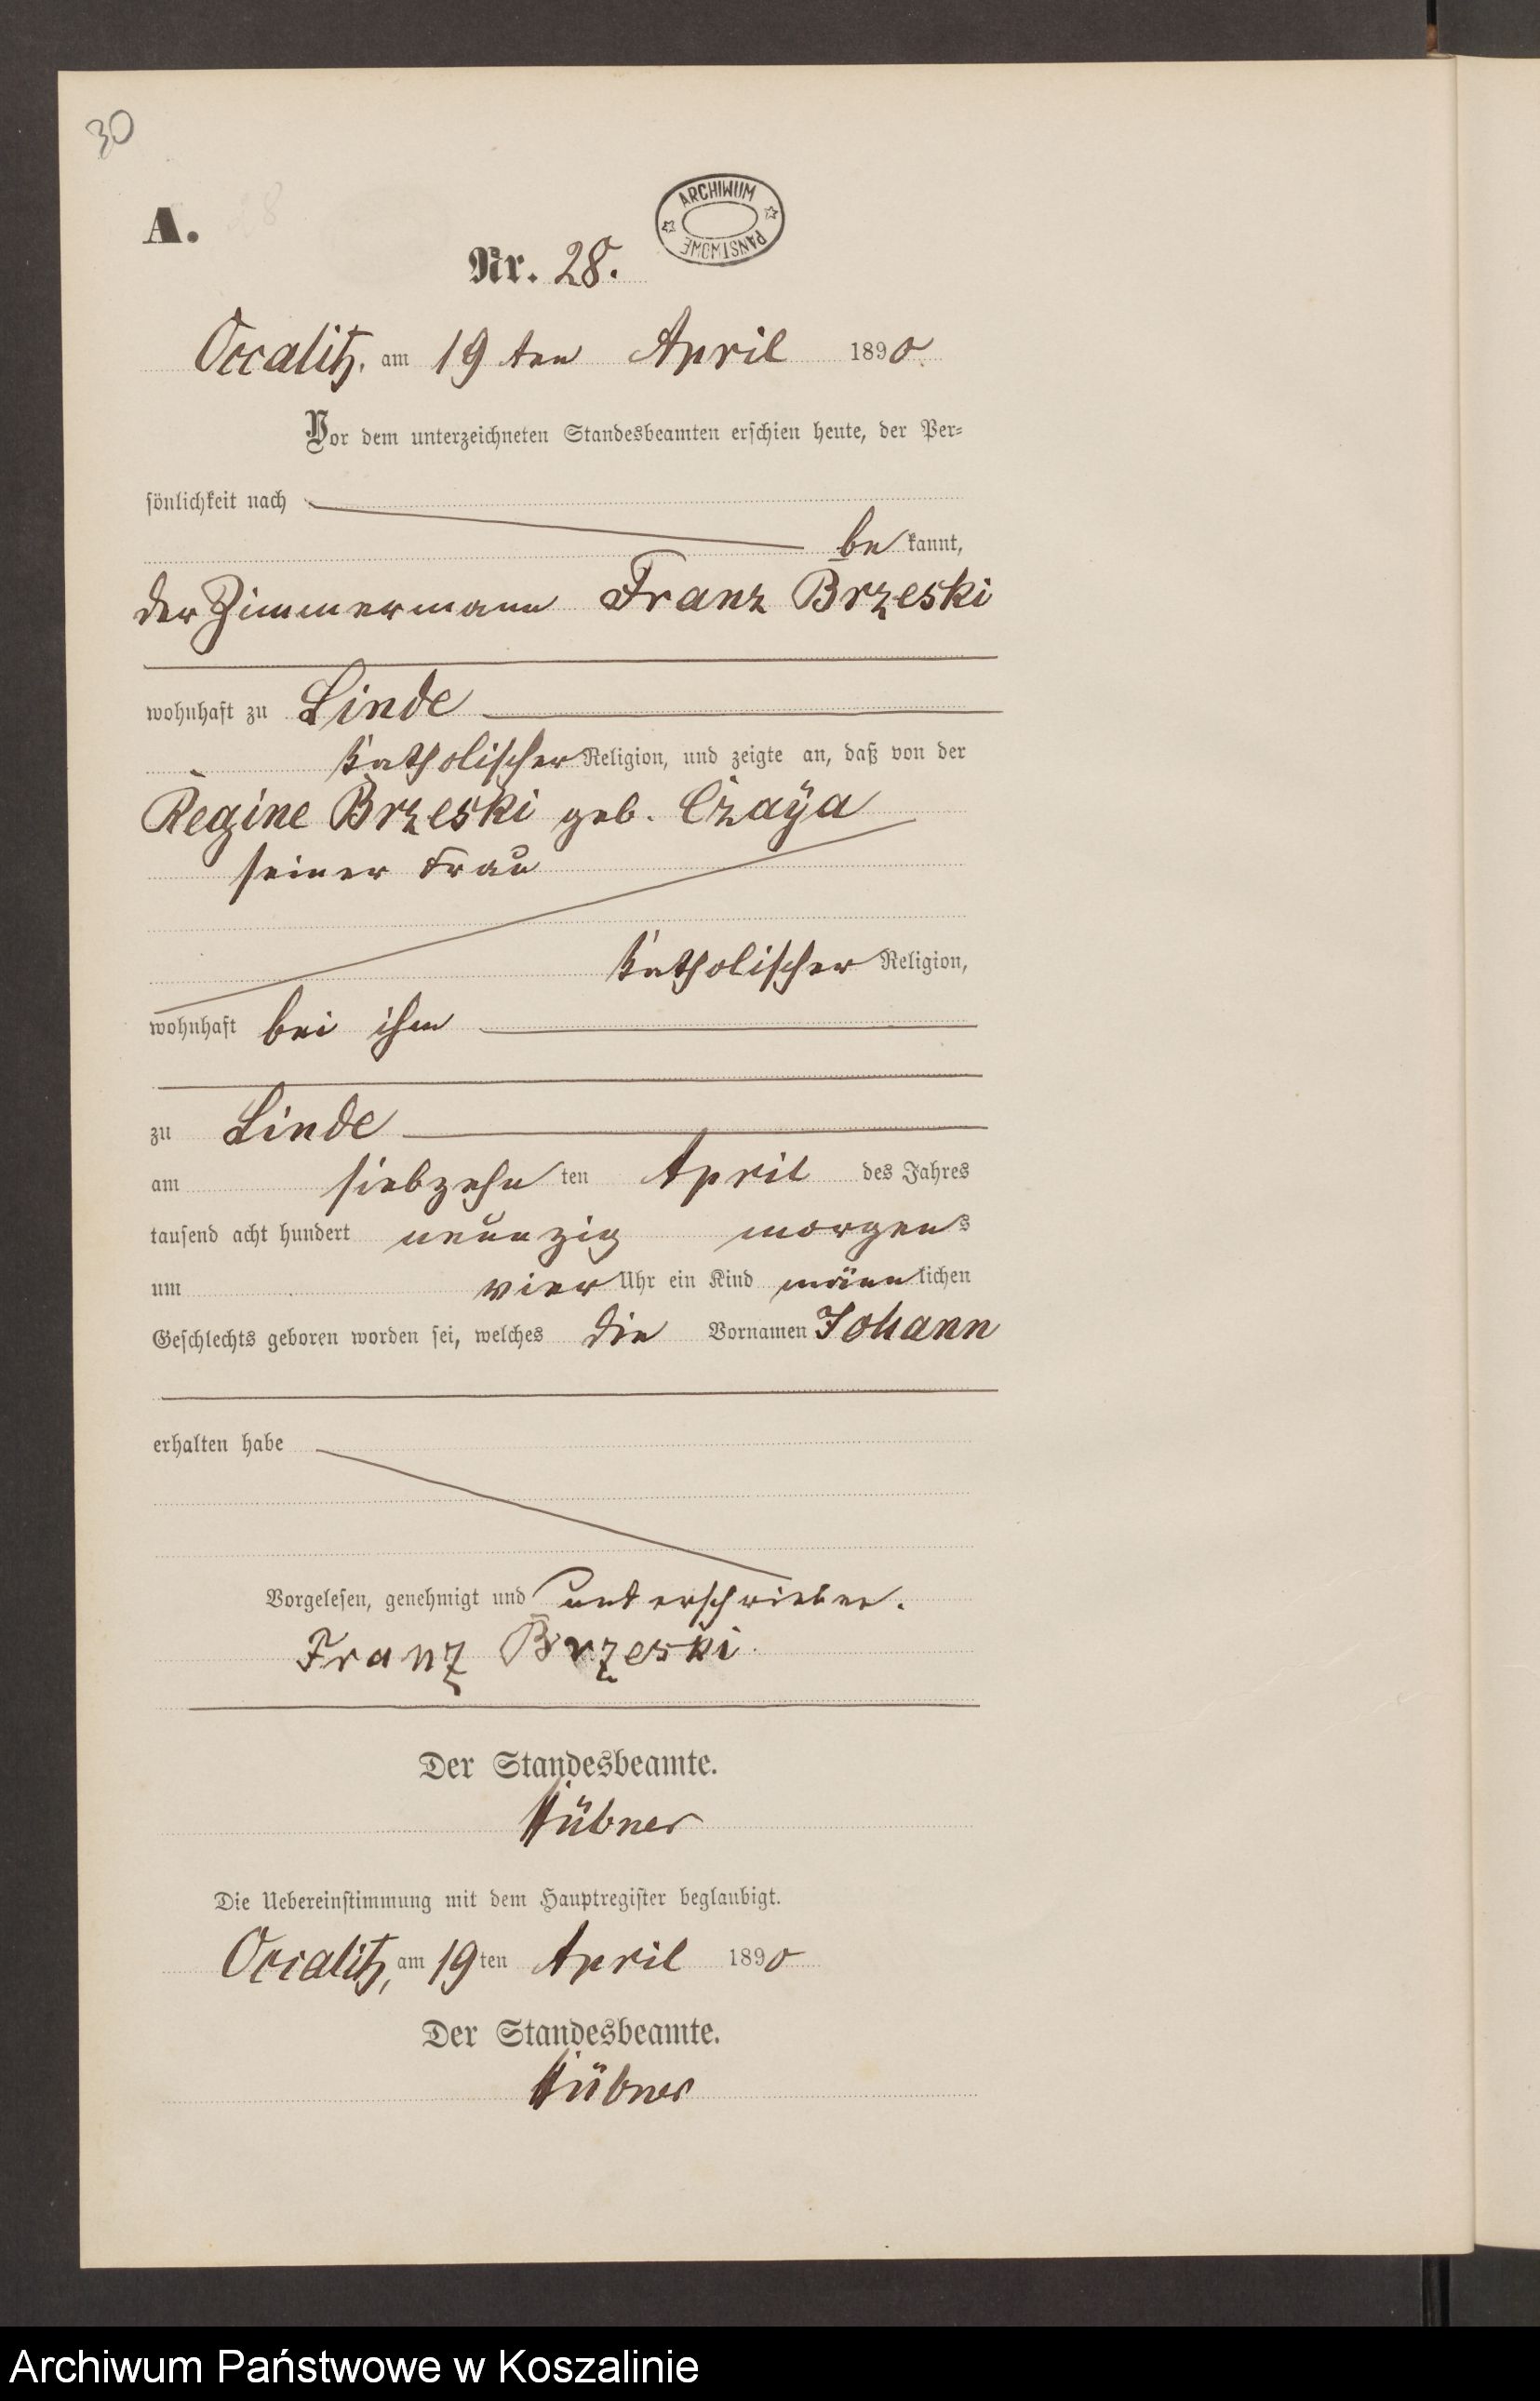 30
A.
28
ARCHIWUM PAŃSTWOWE
Nr. 28.
Occalitz, am 19 ten April 1890.
Vor dem unterzeichneten Standesbeamten erschien heute, der Per-
sönlichkeit nach
be kannt,
der Zimmermann Franz Brzeski
wohnhaft zu Linde
katholischer Religion, und zeigte an, daß von der
Regine Brzeski geb. Czaÿa
seiner Frau
katholischer Religion,
wohnhaft bei ihm
zu Linde
am siebzehn ten April des Jahres
tausend acht hundert neunzig morgens
um vier Uhr ein Kind männlichen
Geschlechts geboren worden sei, welches die Vornamen Johann
erhalten habe
Vorgelesen, genehmigt und unterschrieben.
Franz Brzeski
Der Standesbeamte.
Hübner
Die Uebereinstimmung mit dem Hauptregister beglaubigt.
Occalitz, am 19 ten April 1890
Der Standesbeamte.
Hübner
Archiwum Państwowe w Koszalinie